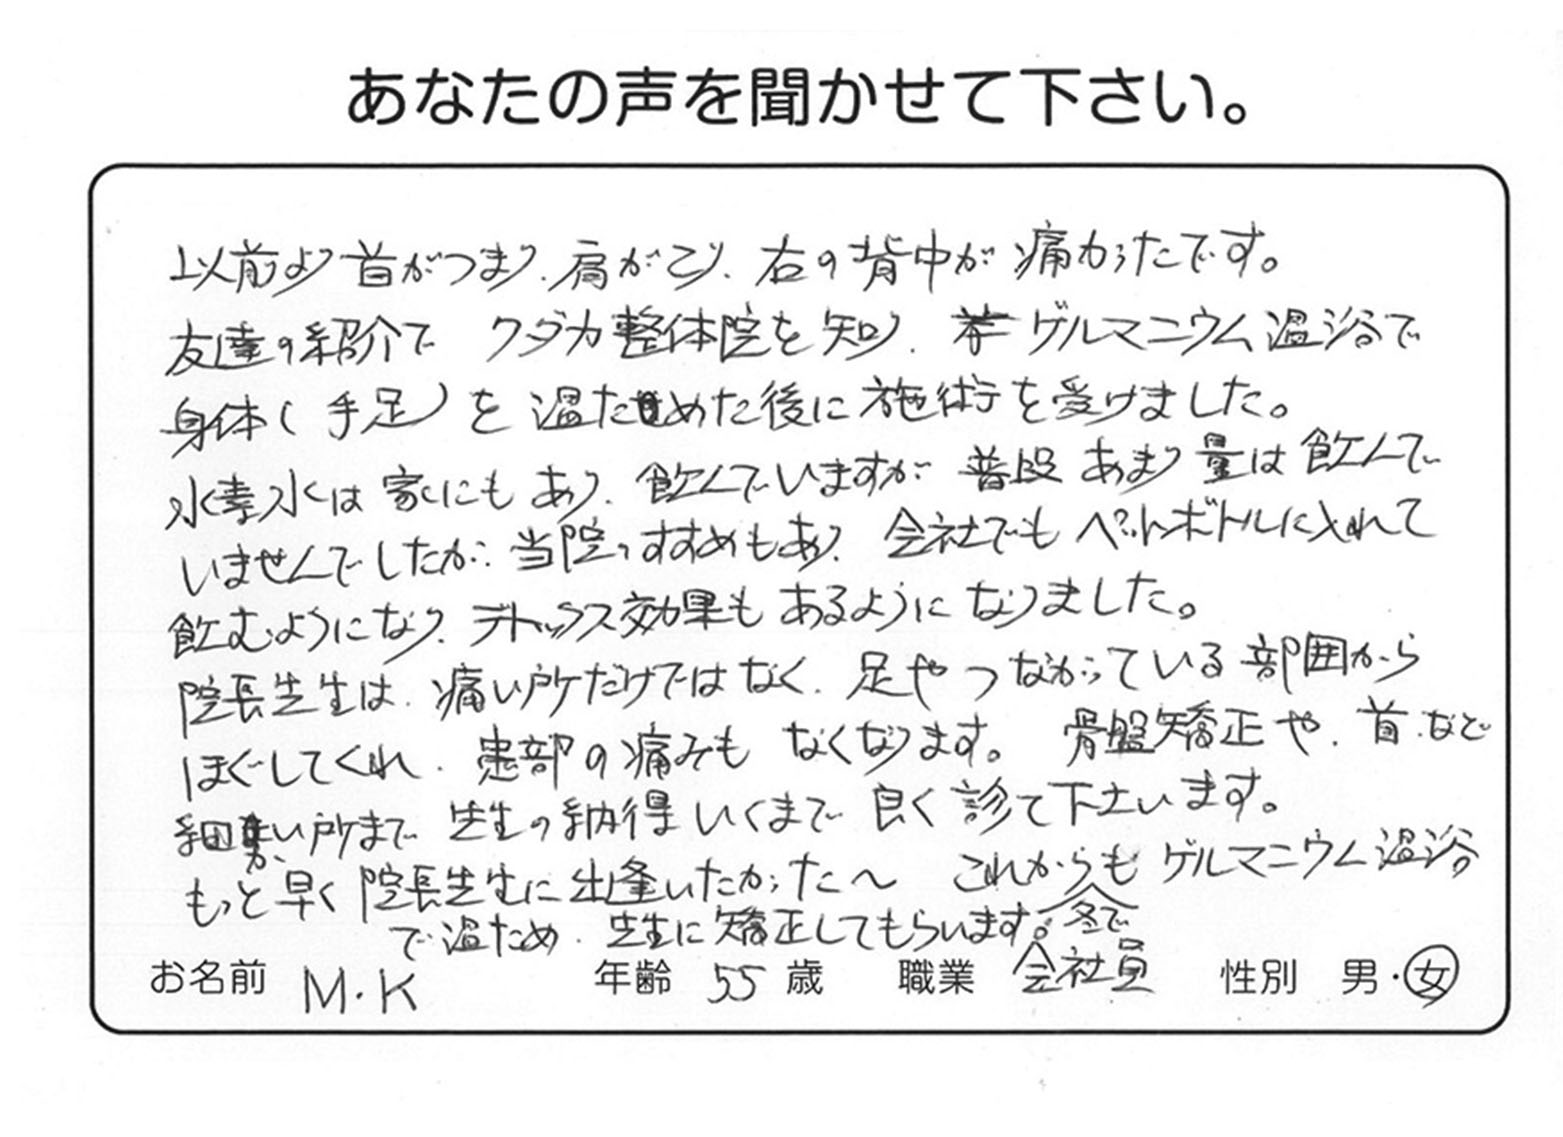 あなたの声を聞かせて下さい。
以前より首がつまり、肩がこり、右の背中が痛かったです。
友達の紹介で クダカ整体院を知り、ゲルマニウム温浴で
身体(手足)を温ためた後に施術を受けました。
水素水は家にもあり、飲んでいますが 普段あまり量は飲んで
いませんでしたが、当院のすすめもあり、会社でもペットボトルに入れて
飲むようになり、デトックス効果もあるようになりました。
院長先生は、痛い所だけではなく、足やつながっている部囲から
ほぐしてくれ、患部の痛みもなくなります。 骨盤矯正や、首など
細かい所まで 先生の納得いくまで 良く診て下さいます。
もっと早く院長先生に出逢いたかった〜 これからもゲルマニウム温浴
で温ため、先生に矯正してもらいます。
お名前 M・K 年齢 55 歳 職業 会社員 性別 男・女